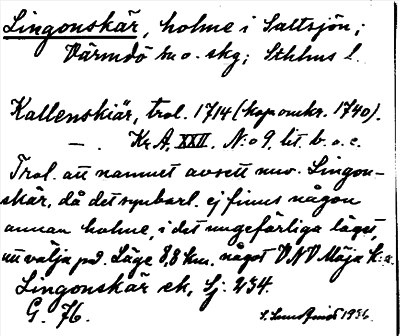 Lingonskär, holme i Saltsjön;
Värmdö sn o. skg; Sthlms l.
Kallenskiär, trol. 1714 (kop omkr. 1740).
— . Kr A. XXII. N:o 9. lit. b. o. c.
Trol. att namnet avsett nuv. Lingon-
skär, då det synbarl. ej finns någon
annan holme, i det ungefärliga läget,
att välja på. Läge 8,8 km. något VNV Möja k:a.
Lingonskär ek, Sj. 234.
G. 76.
1936